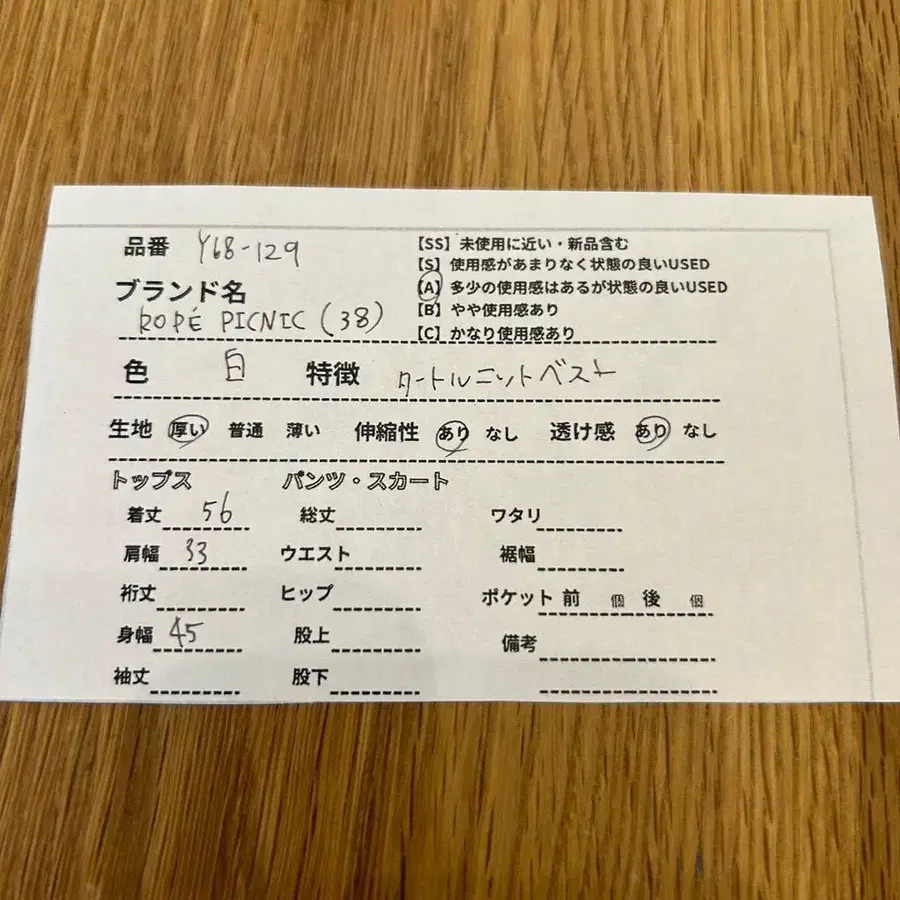 品番 Y68-129
【SS】未使用に近い・新品含む
【S】使用感があまりなく状態の良いUSED
【A】多少の使用感はあるが状態の良いUSED
【B】やや使用感あり
【C】かなり使用感あり
ブランド名
ROPÉ PICNIC (38)
色 白 特徴 タートルニットベスト
生地 厚い 普通 薄い 伸縮性 あり なし 透け感 あり なし
トップス パンツ・スカート
着丈 56 総丈 ワタリ
肩幅 33 ウエスト 裾幅
裄丈 ヒップ ポケット 前 個 後 個
身幅 45 股上 備考
袖丈 股下